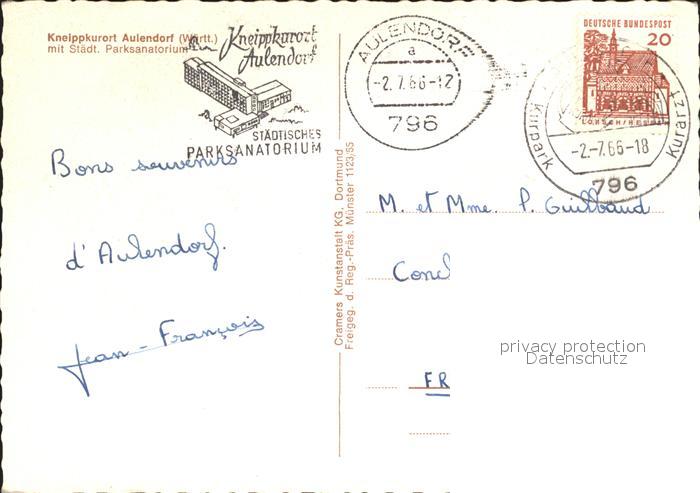 Kneippkurort Aulendorf (Württ.)
mit Städt. Parksanatorium
Kneippkurort
Aulendorf
STÄDTISCHES
PARKSANATORIUM
AULENDORF
a
-2.7.66-12
796
DEUTSCHE BUNDESPOST
20
LORSCH/HESSEN
Kurpark
Kurarzt
-2.-7.66-18
796
Bons souvenirs
d'Aulendorf.
Jean-François
Cramers Kunstanstalt KG. Dortmund
Freigeg. d. Reg.-Präs. Münster 1123/55
M. et Mme. P. Guilbaud
FR
privacy protection
Datenschutz